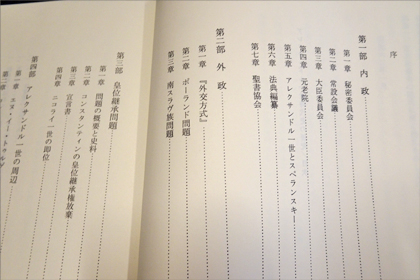 序
第一部 内政
第一章 秘密委員会
第二章 常設会議
第三章 大臣委員会
第四章 元老院
第五章 アレクサンドル一世とスペランスキー
第六章 法典編纂
第七章 聖書協会
第二部 外政
第一章 『外交方式』
第二章 ポーランド問題
第三章 南スラヴ族問題
第三部 皇位継承問題
第一章 問題の概要と史料
第二章 コンスタンティンの皇位継承権放棄
第三章 宣詔書
第四章 ニコライ一世の即位
第四部 アレクサンドル一世の周辺
第一章